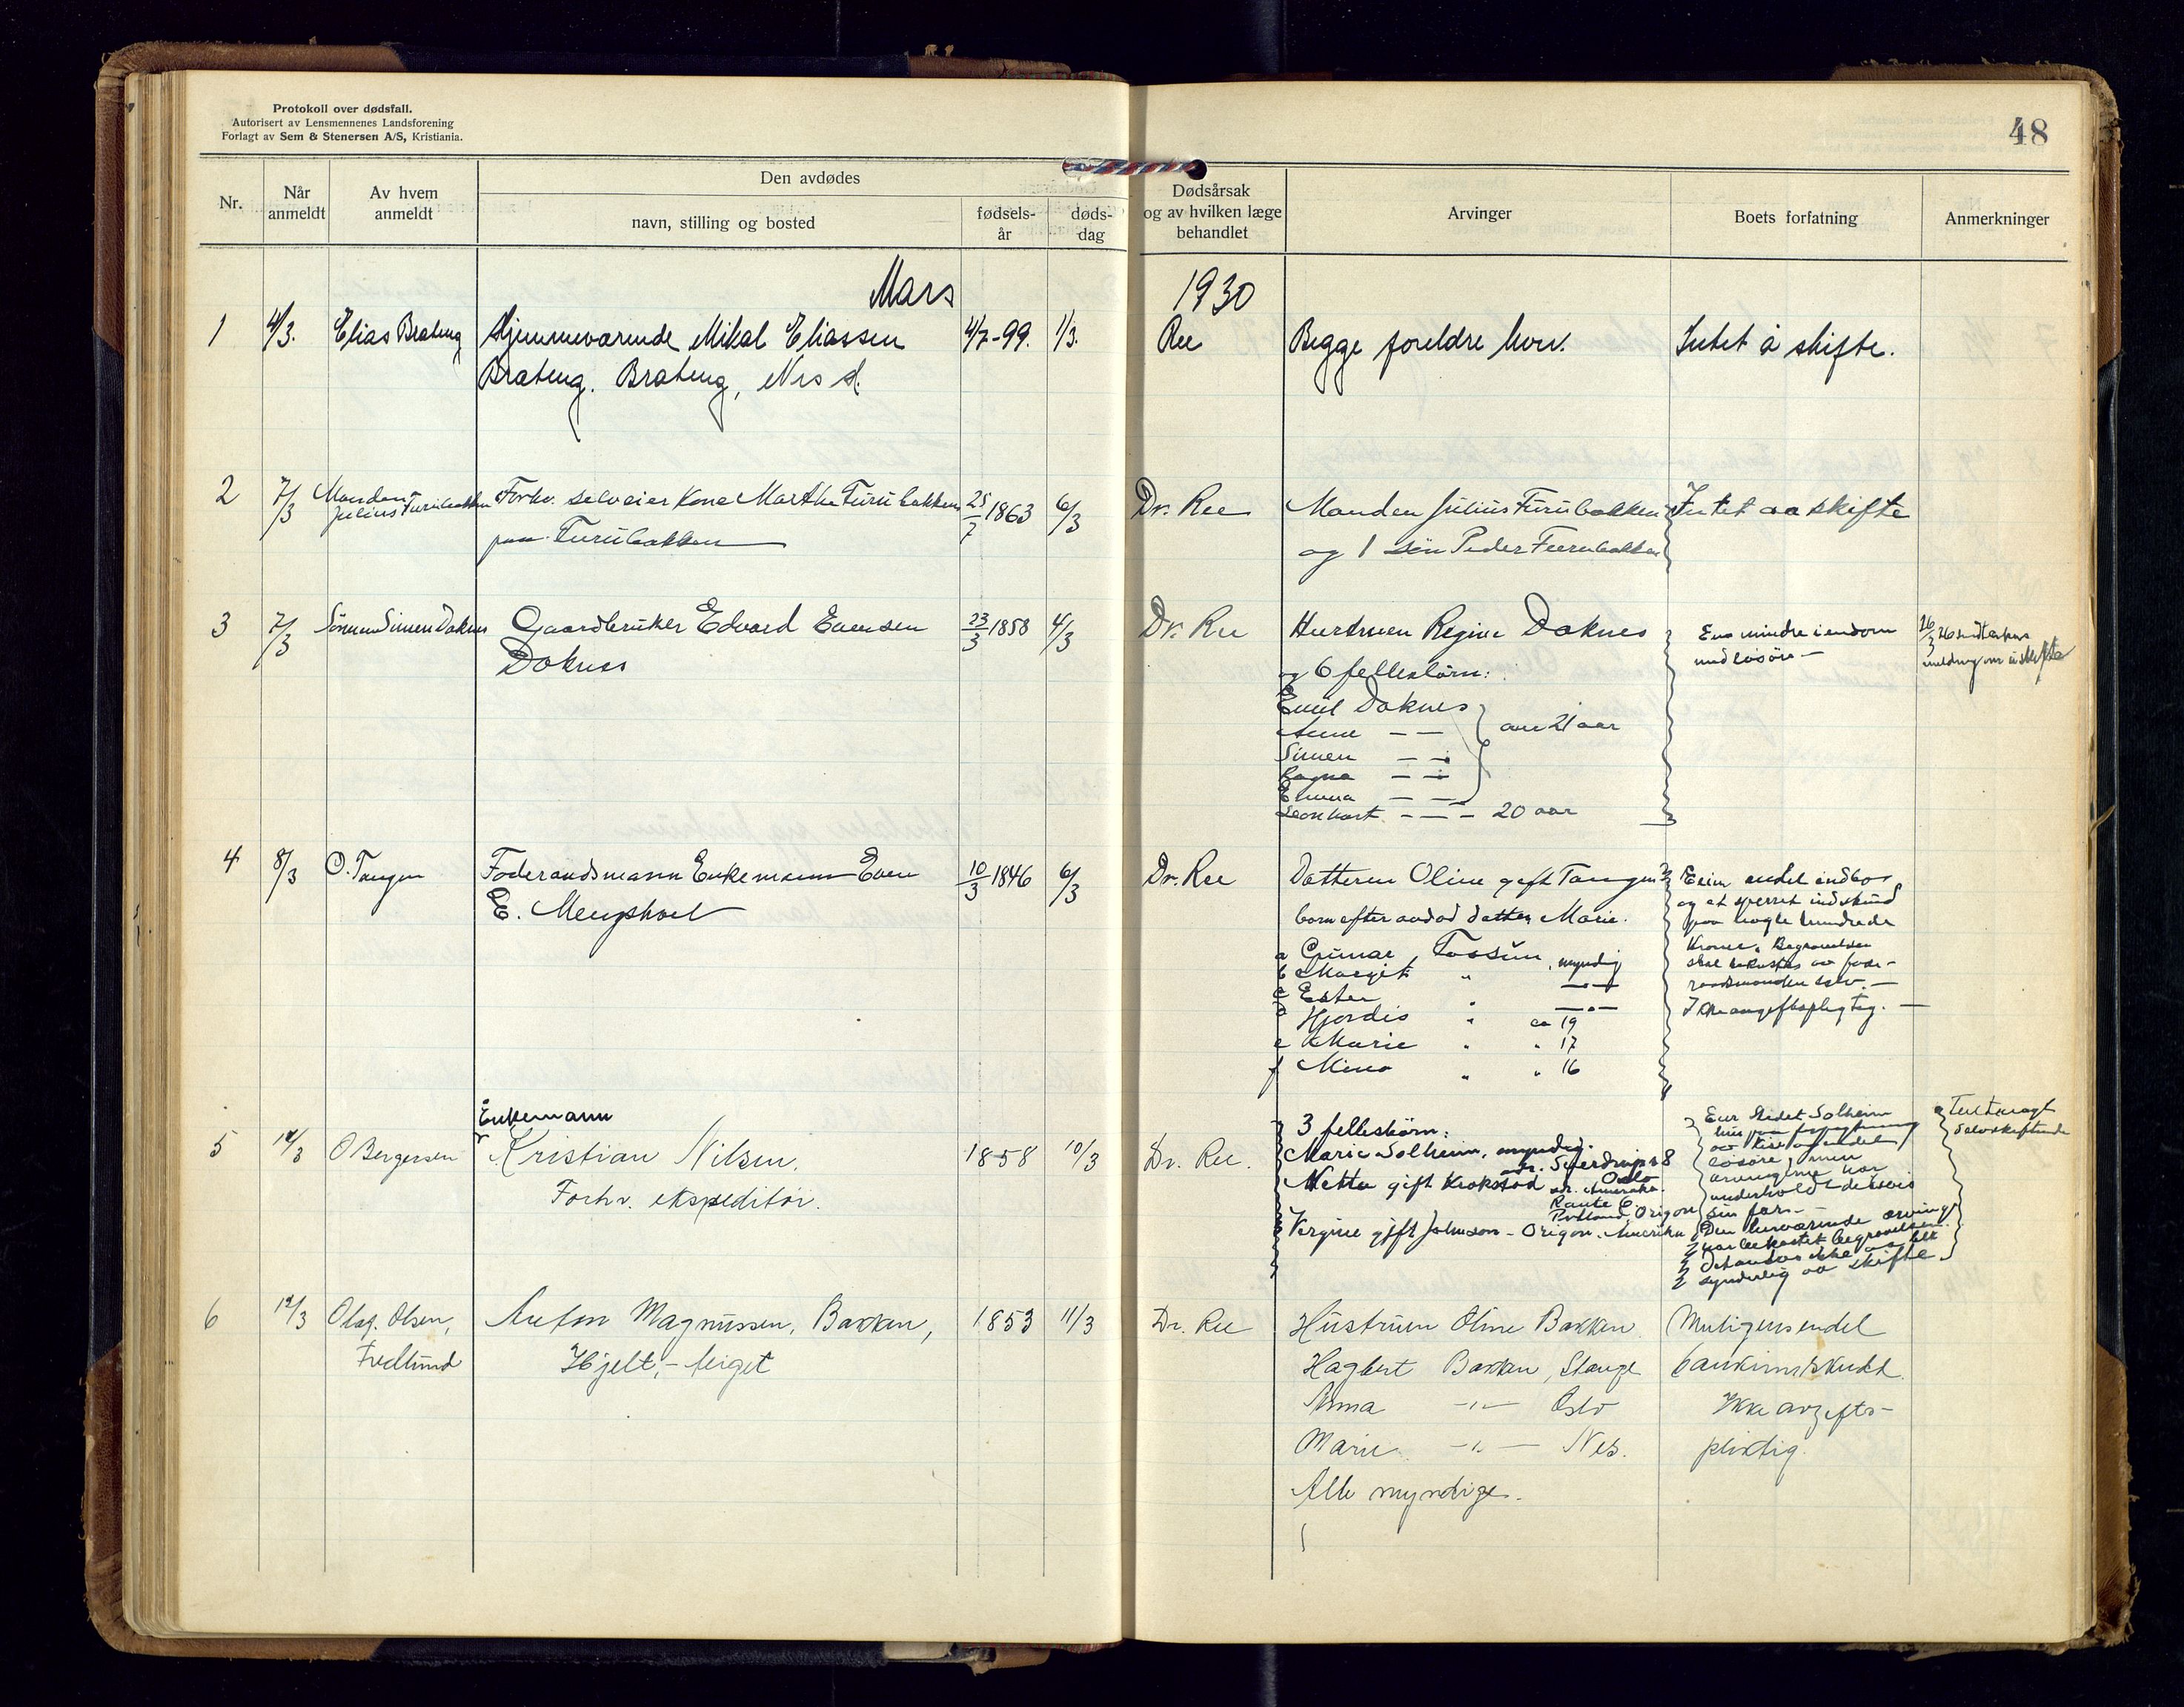 Protokoll over dødsfall.
Autorisert av Lensmennenes Landsforening
Forlagt av Sem & Stenersen A/S, Kristiania.
48
Nr.
Når anmeldt
Av hvem anmeldt
Den avdødes
navn, stilling og bosted
fødsels-år
døds-dag
Dødsårsak og av hvilken læge behandlet
Arvinger
Boets forfatning
Anmerkninger
Mars 1930
1 4/3. Elias Brateng Hjemmeværende Mikal Eliassen 4/7-99. 1/3. Ree Begge foreldre lever. Intet å skifte.
Brateng. Brateng, Nes s.
2 7/3 Manden Julius Furubakken Forhv. selveier Kone Marthe Furubakken 25/7 1863 6/3 Dr. Ree Manden Julius Furubakken Intet aa skifte
paa Furubakken og 1 søn Peder Furubakken
3 7/3 Sønnen Simen Doknes Gaardbruker Edvard Evensen 23/3 1858 4/3 Dr. Ree Hustruen Regine Doknes Ens mindre eiendom
Doknes og 6 fellesbørn: med løsøre
26/3 26 sendt
melding om å skifte
Emil Doknes
Anne — — over 21 aar
Simen — —
Ragna — —
Emma — —
Leonhart — — — 20 aar
4 8/3 O. Tangen Føderaadsmann Enkemann Even 10/3 1846 6/3 Dr. Ree Datteren Oline gift Tangen Eier endel indbo
E. Mengshoel barn efter avdød datter Marie. og et sperret indskud
paa nogle hundrede
Kroner. Begravelsen
skal bekostes av føde-
raadsmanden selv. —
Ikke avgiftspligtig. —
a Gunnar Fossum, myndig
b Margit " — " —
c Ester " — " —
d Hjørdis " ca 19
e Marie " " 17
f Mina " " 16
5 12/3 O Bergersen Enkemann 1858 10/3 Dr. Ree.
Kristian Nilsen.
Forhv. ekspeditør.
3 fellesbørn:
Marie Solheim, myndig.
adr. Sverdrups g 8
Oslo
Netta gift Krokstad adr. Amerika.
Raute 6.
Portland, Origon
Vergine gift Johnson - Origon. Amerika
Eier Stedet Solheim
løsøre, men
arvingene har
underholdt delvis
sin far. —
Den herværende arving
har bekostet begravelsen.
Det ansees ikke aa bli
synderlig aa skifte
Selvskiftende
6 12/3 Olaf. Olsen, Anton Magnussen, Bakken, 1853 11/3 Dr. Ree Hustruen Oline Bakken Muligens endel
Fredlund Hjelt,-teiget Hagbart Bakken, Stange bankinnskudd.
Anna —"— Oslo Ikke avgifts-
Marie. —"— Nes. pliktig.
Alle myndige.